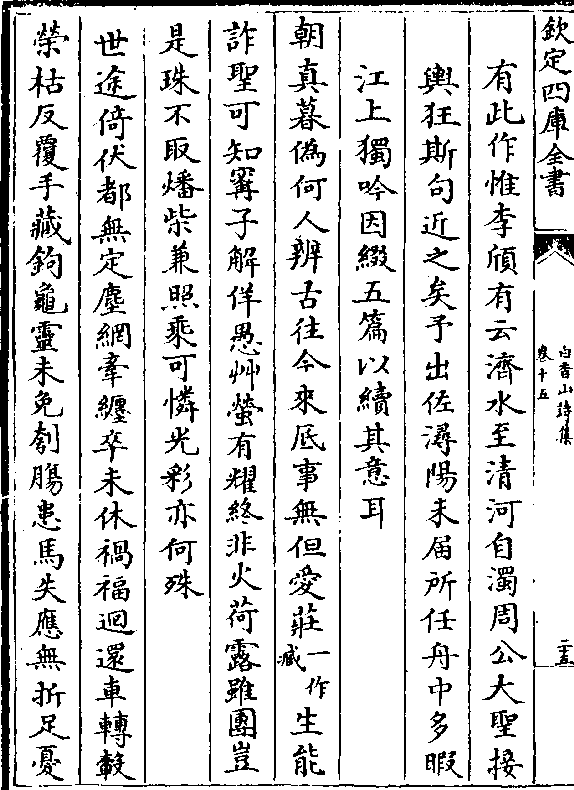 欽定四庫全書
白香山詩集
卷十五
二十五
有此作惟李頎有云濟水至清河自濁周公大聖接
輿狂斯句近之矣予出佐潯陽未届所任舟中多暇
江上獨吟因綴五篇以續其意耳
朝真暮偽何人辨古往今來底事無但愛莊一作臧生能
詐聖可知寗子解佯愚艸螢有耀終非火荷露雖團豈
是珠不取燔柴兼照乘可憐光彩亦何殊
世途倚伏都無定塵網牽纏卒未休禍福迴還車轉轂
榮枯反覆手藏鉤龜靈未免刳腸患馬失應無折足憂